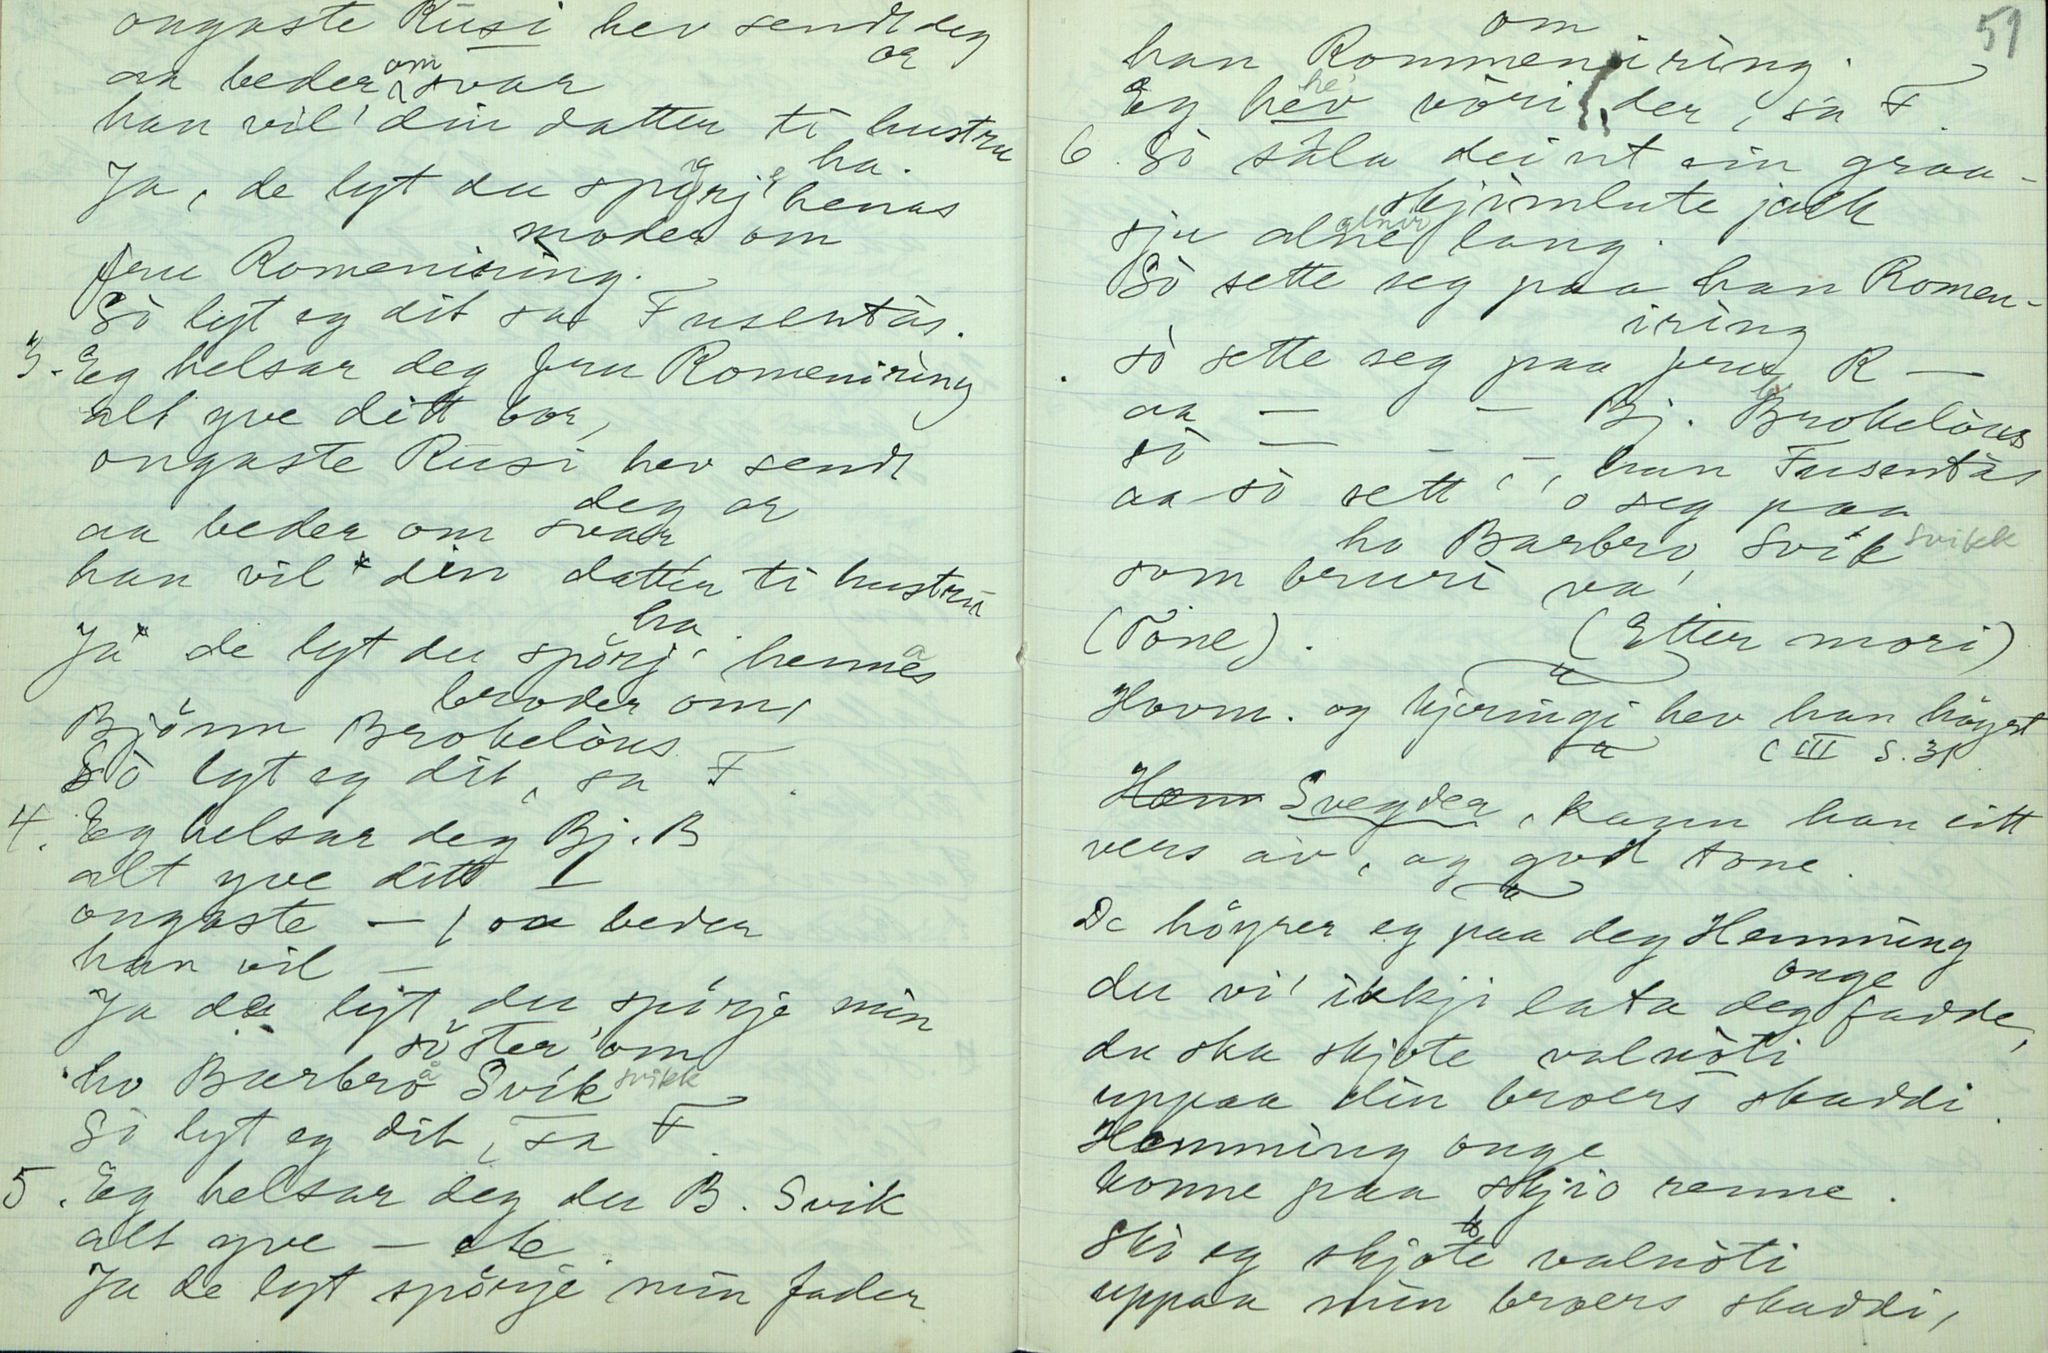 ongaste Rusi hev sendt deg
or
aa beder om svar
han vil' din datter ti hustru
ha.
Ja, de lyt du spörj' henas
moder om
fru Romeniring.
Sò lyt eg dit sa Fusentàs.
3. Eg helsar deg fru Romeniring
alt yve ditt bor,
ongaste Rusi hev sendt
deg or
aa beder om svar
han vil din datter ti hustru
ha.
Ja de lyt du spörj' hennes
broder om,
Bjönn Brokelöus
Sò lyt eg dit, sa F.
4. Eg helsar deg Bj. B
alt yve ditt —
ongaste — , aa beder
han vil —
Ja de lyt du spörje min
söster om
ho Barbro Svik svikk
Sò lyt eg dit, sa F.
5. Eg helsar deg du B. Svik
alt yve — ste
Ja de lyt spörje min fader
51
om
han Rommeniring.
Eg hev he vöri der, sa F.
6. Sò sàla dei ut ein graa-
skjimlute jalk
sju alne alnir lang.
Sò sette seg paa han Romen-
iring
sò sette seg paa fru R —
aa — — Bj. Brokelöus
sò — — han Fusentàs
aa sò sett' o seg paa
ho Barbro Svik svikk
som bruri va'
(Tòne). (Etter mori)
Hovm. og kjeringi hev han höyrt
(III s. 31
Hem Svegder, kann han eitt
vers av, og god tone.
De höyrer eg paa deg Hemming
onge
du vi' ikkji lata deg fadde,
du ska skjote valnöti
uppaa din broers skaddi.
Hemming onge
konne paa skjio renne.
Ski eg skjote valnöti
uppaa min broers skaddi,